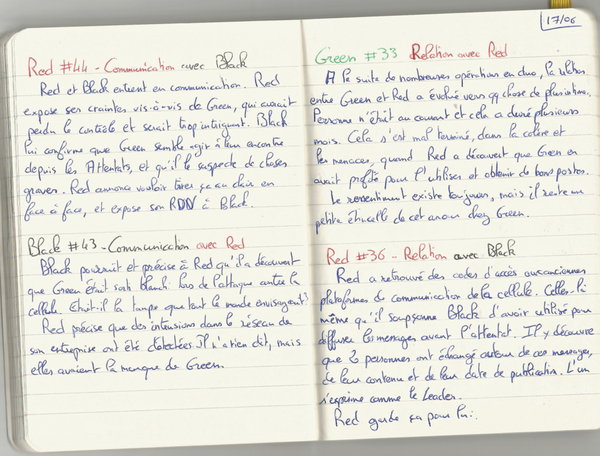 Red #44 - Communication avec Black
Red et Black entrent en communication. Red
expose ses craintes vis-à-vis de Green, qui aurait
perdu le contrôle et serait trop intrigant. Black
lui confirme que Green semble agir à leur encontre
depuis les Attentats, et qu'il le suspecte de choses
graves. Red annonce vouloir tirer ça au clair en
face à face, et expose son RDV à Black.
Black #43 - Communication avec Red
Black poursuit et précise à Red qu'il a découvert
que Green était sorti blanchi lors de l'attaque contre la
cellule. Etait-il la taupe que tout le monde envisageait?
Red précise que des intrusions dans le réseau de
son entreprise ont été détectées. Il n'a rien dit, mais
elles avaient la marque de Green.
17/06
Green #33 Relation avec Red
A la suite de nombreuses opérations en duo, la relation
entre Green et Red a évolué vers qq chose de plus intime.
Personne n'était au courant et cela a duré plusieurs
mois. Cela s'est mal terminé, dans la colère et
les menaces, quand Red a découvert que Green en
avait profité pour l'utiliser et obtenir de bons postes.
Le ressentiment existe toujours, mais il reste une
petite étincelle de cet amour chez Green.
Red #36 - Relation avec Black
Red a retrouvé des codes d'accès aux anciennes
plateformes de communication de la cellule. Celles-là
même qu'il soupçonne Black d'avoir utilisé pour
diffuser les messages avant l'attentat. Il y découvre
que 2 personnes ont échangé autour de ces messages,
de leur contenu et de leur date de publication. L'un
s'exprime comme le Leader.
Red garde ça pour lui.